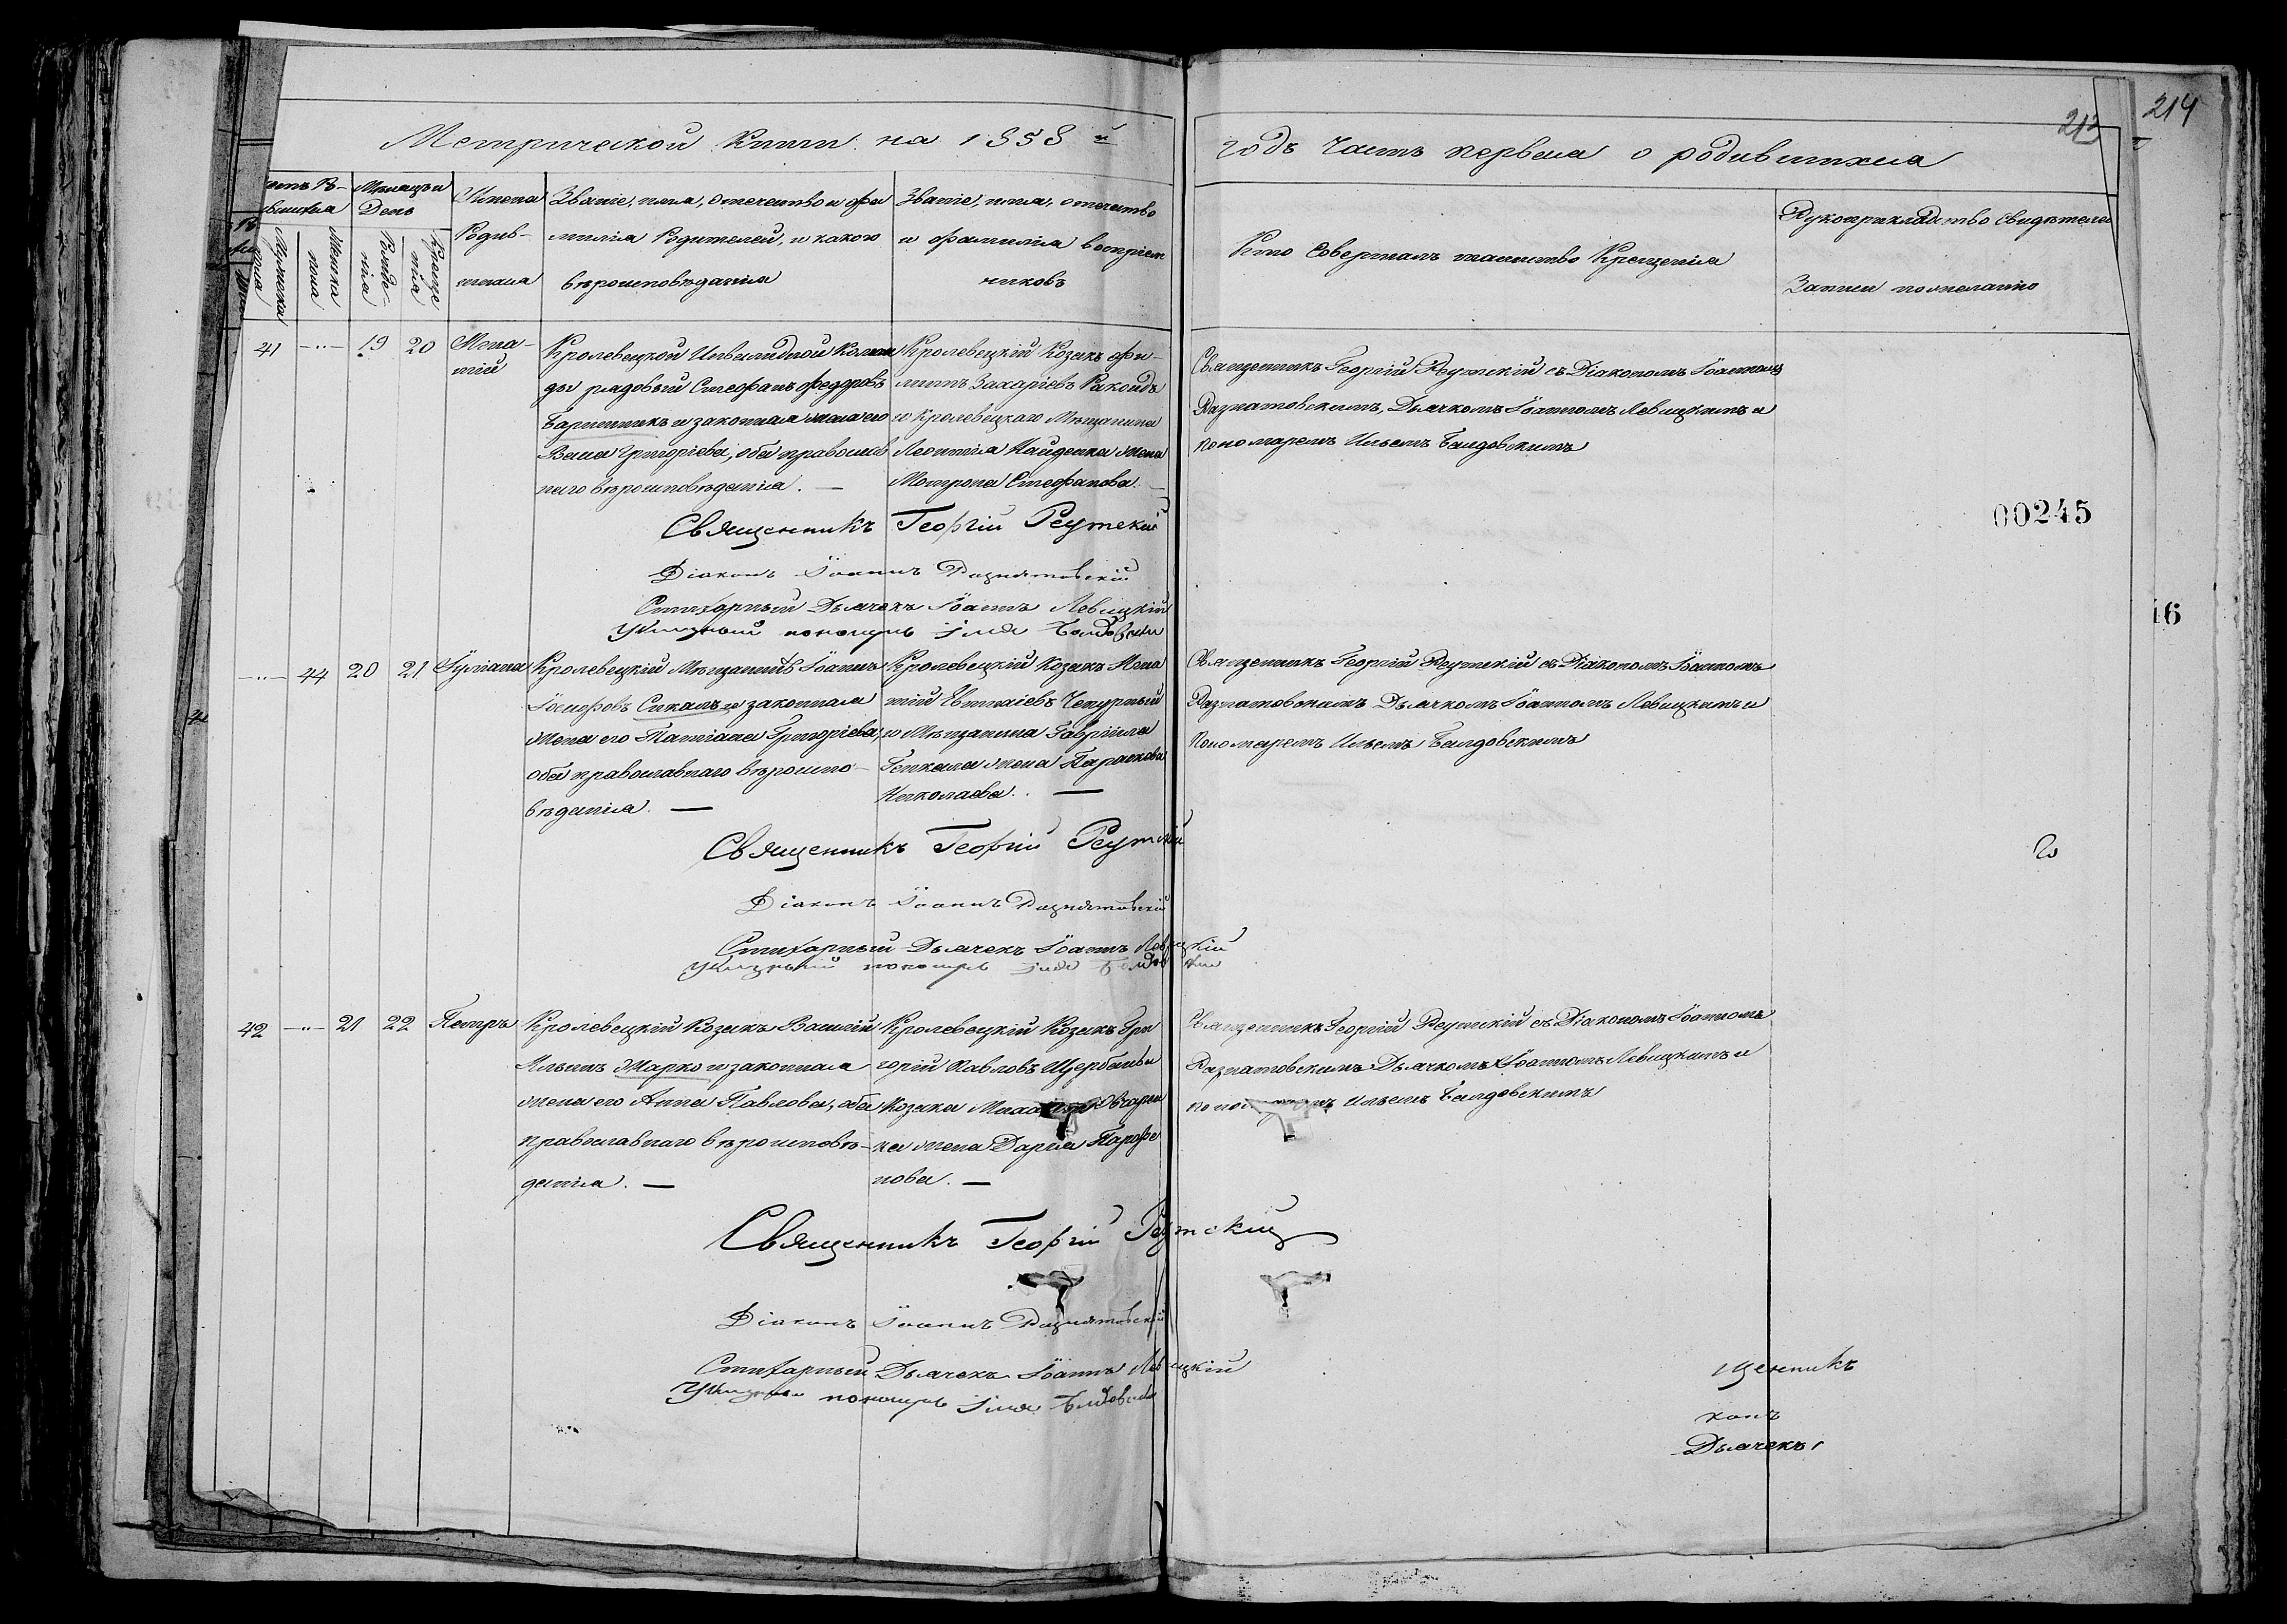 214
213
Метрической книги на 1858 й
годъ Часть первая о родившихся
Мѣсяцъ и
День
Имена
Родив-
шихся
Званіе, имя, отечество и фа
милія Родителей, и какого
вѣроисповѣданія
Званіе, имя, отечество
и фамилія воспріем
никовъ
Кто Совершалъ таинство Крещенія
Рукоприкладство Свидѣтелей
Записи по желанію
Мужеска
пола
Женска
пола
Рожде-
нія
Креще
нія
41 -"- 19 20 Игна-
тій
Кролевецкой Инвалидной Коман
ды рядовый Стефанъ Феодоровъ
и законная жена его
Григоріева, оба православ
наго вѣроисповѣданія. —
Кролевецкій Козакъ Фи-
липъ Захаріевъ
и Кролевецкаго Мѣщанина
Леонтія Найденка жена
Матрона Стефанова. —
Священникъ Георгій Реутскій съ Діакономъ Іоанномъ
Разнатовскимъ, Дьячкомъ Іоанномъ Левицкимъ и
пономаремъ Ильемъ Балдовскимъ
00245
Священникъ Георгій Реутскій
Діаконъ Іоаннъ Разнатовскій
Стихарный Дьячекъ Іоаннъ Левицкій
Указный пономарь Илья Балдовскій
16
-"- 44 20 21 Іуліана
Кролевецкій Мѣщанинъ Іоаннъ
Іосифовъ Сикалъ и законная
жена его Татіана Григоріева,
оба православнаго вѣроиспо-
вѣданія. —
Кролевецкій Козакъ Игна
тій Чепурный
и Мѣщанина Гавріила
жена Параскева
Николаева. —
Священникъ Георгій Реутскій съ Діакономъ Іоанномъ
Разнатовскимъ Дьячкомъ Іоанномъ Левицкимъ и
Пономаремъ Ильемъ Балдовскимъ
Священникъ Георгій Реутскій
Діаконъ Іоаннъ Разнатовскій
Стихарный Дьячекъ Іоаннъ Левицкій
Указный пономарь Илья Балдовскій
42 -"- 21 22 Петръ
Кролевецкій Козакъ Василій
Ильинъ Марко и законная
жена его Анна Павлова, оба
православнаго вѣроисповѣ-
данія. —
Кролевецкій Козакъ Гри
горій Павловъ Щербань и
Козака Овчарен
ка жена Дарія Парфе
нова. —
Священникъ Георгій Реутскій съ Діакономъ Іоанномъ
Разнатовскимъ Дьячкомъ Іоанномъ Левицкимъ и
пономаремъ Ильемъ Балдовскимъ
Священникъ Георгій Реутскій
Діаконъ Іоаннъ Разнатовскій
Стихарный Дьячекъ Іоаннъ Левицкій
Указный пономарь Илья Балдовскій
щенникъ
конъ
Дьячекъ